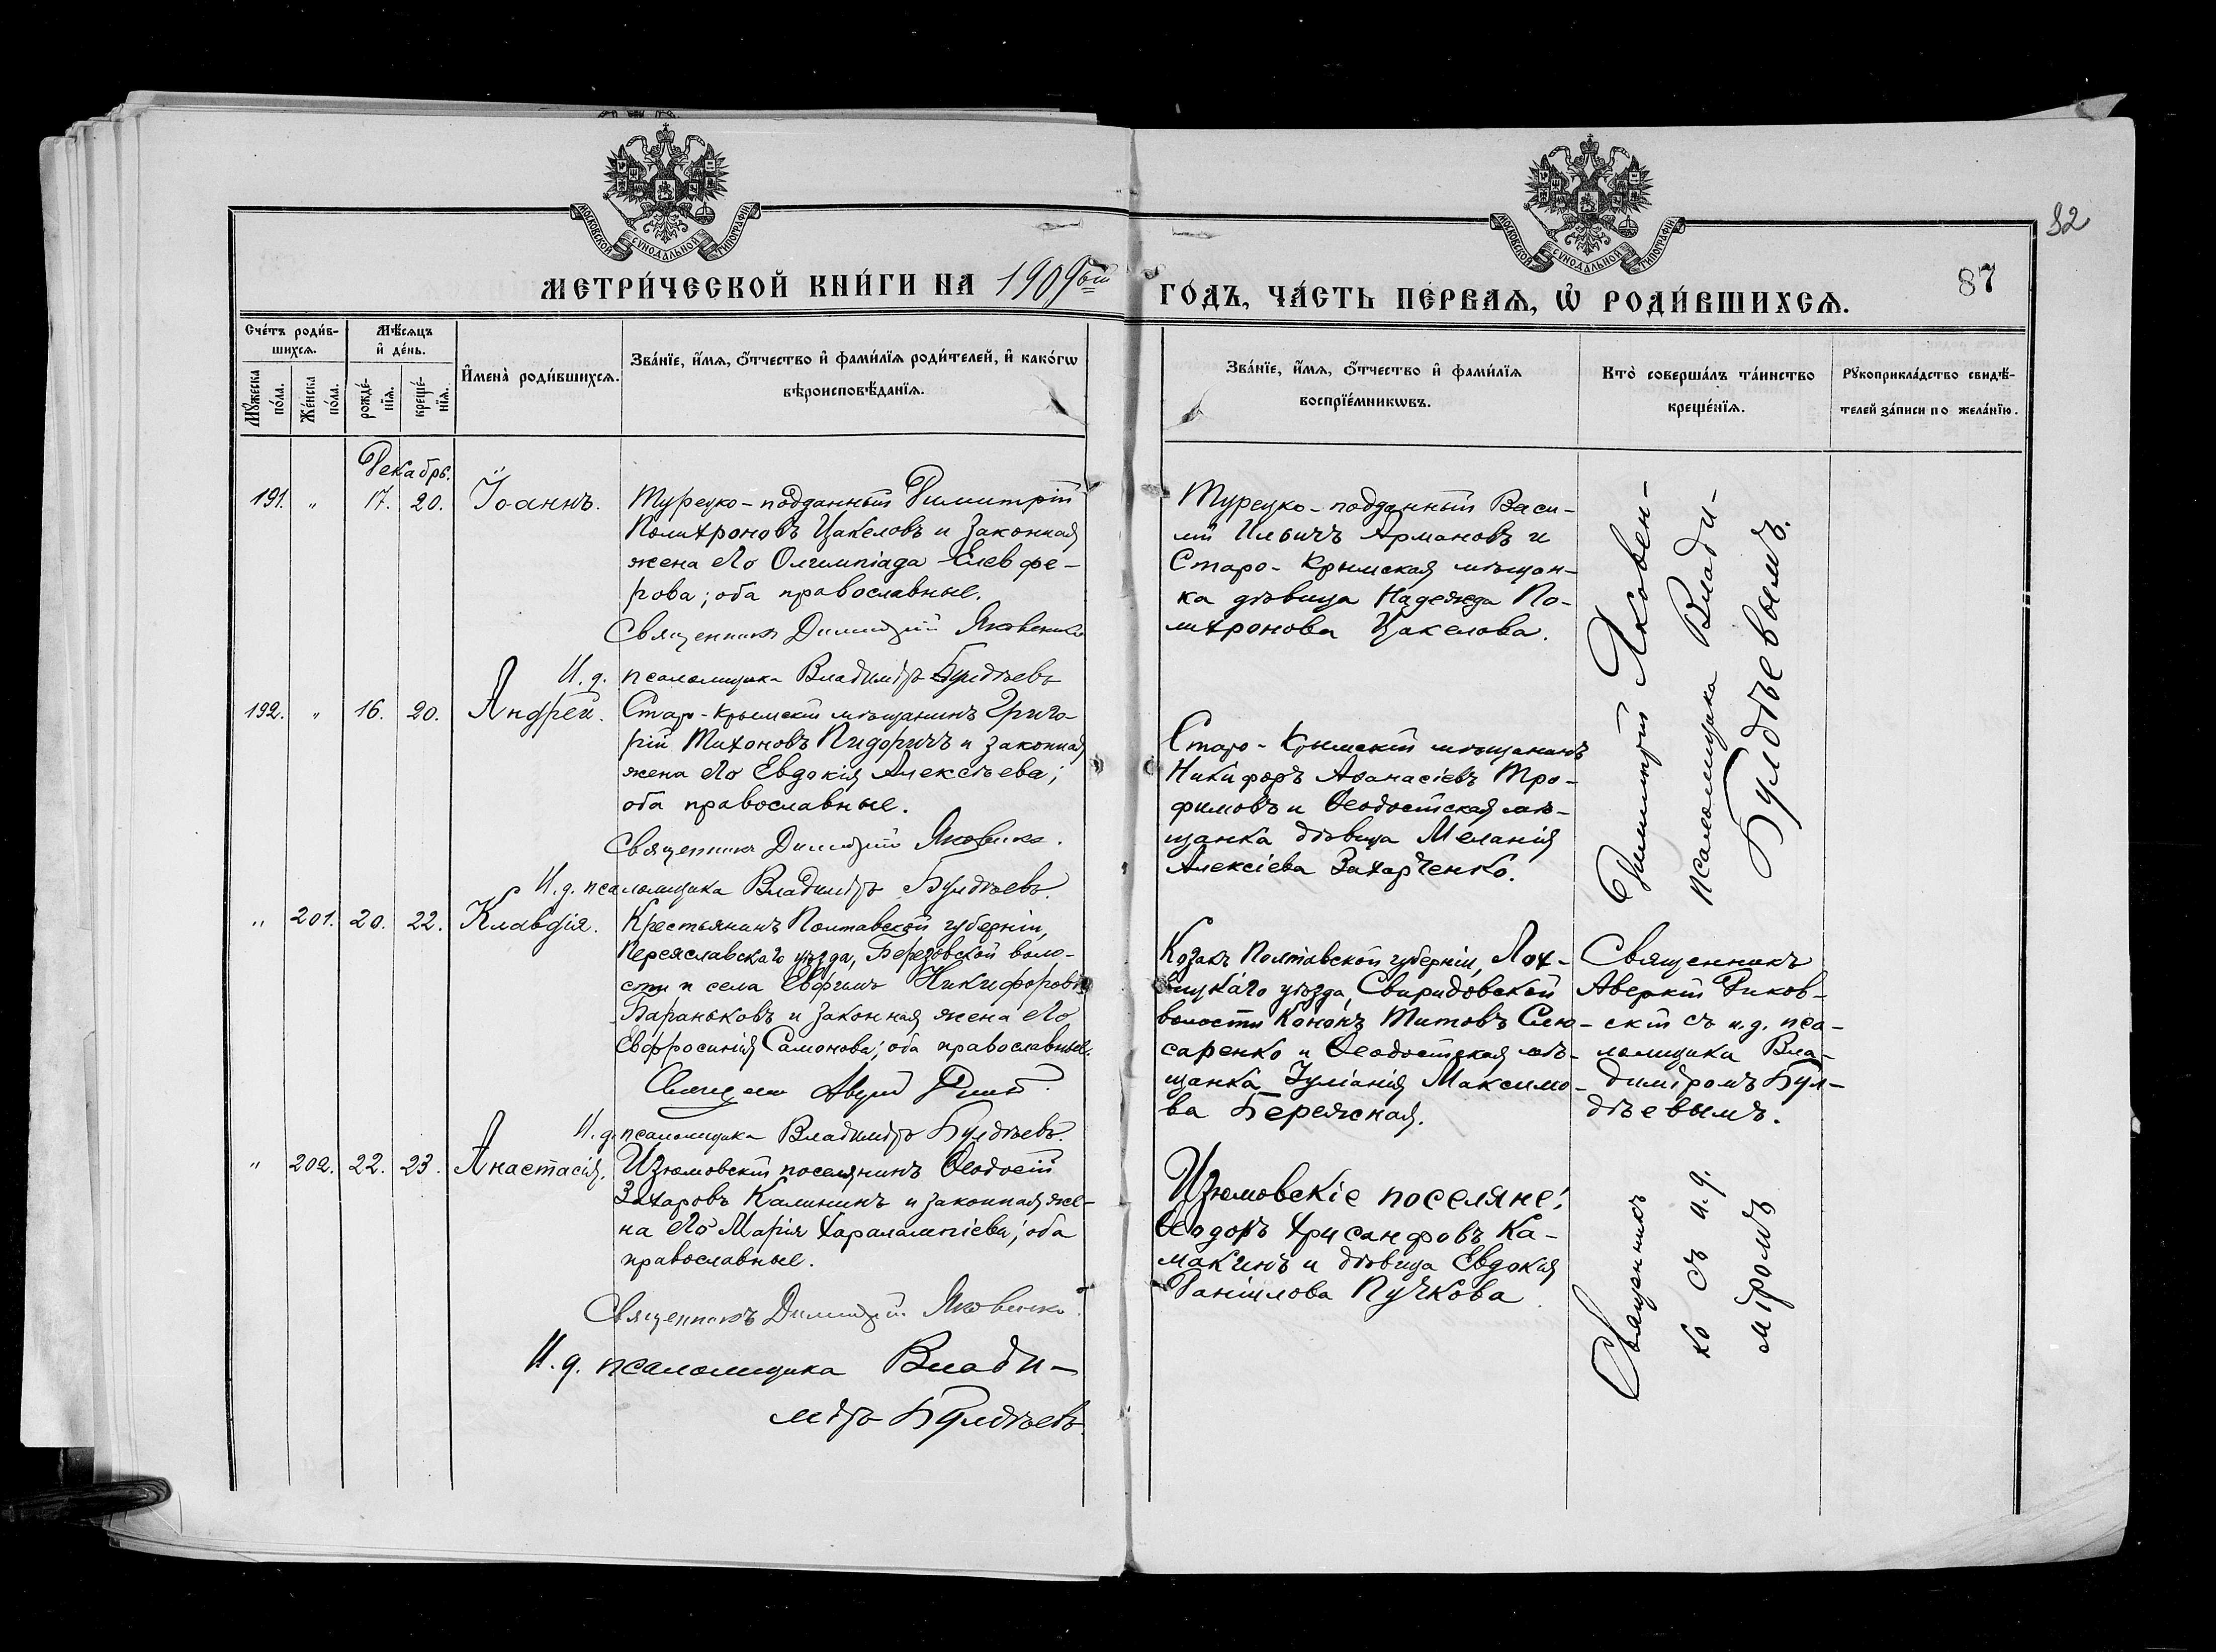 82
87
МОСКОВСКОЙ СѴНОДАЛЬНОЙ ТИПОГРАФІИ
МОСКОВСКОЙ СѴНОДАЛЬНОЙ ТИПОГРАФІИ
МЕТРИ́ЧЕСКОЙ КНИ́ГИ НА 1909ый
ГО́ДЪ, ЧА́СТЬ ПЕ́РВАѦ, Ѡ҆ РОДИ́ВШИХСѦ.
Сче́тъ роди́в-
шихсѧ.
Мѣ́сяцъ
и҆ де́нь.
Мꙋ́жеска
по́ла.
Же́нска
по́ла.
рожде́-
нїѧ.
креще́-
нїѧ.
И҆мена̀ роди́вшихсѧ.
Зва́нїе, и҆́мѧ, ѻ҆́тчество и҆ фами́лїѧ роди́телей, и҆ како́гѡ
вѣроисповѣ́данїѧ.
Зва́нїе, и҆́мѧ, ѻ҆́тчество и҆ фами́лїѧ
воспрїе́мникѡвъ.
Кто̀ соверша́лъ та́инство
креще́нїѧ.
Рꙋкоприкла́дство свидѣ́-
телей за́писи по жела́нїю.
Декабрь.
191. " 17. 20. Іоаннъ.
Турецко-подданный Димитрій
Полихроновъ Цакеловъ и законная
жена его Олимпіада Елевфе-
рова; оба православные.
Священникъ Димитрій Яковенко
И. д. псаломщика Владиміръ Булдѣевъ
Турецко-подданный Васи-
лій Ильичъ Армановъ и
Старо-Крымская мѣщан-
ка дѣвица Надежда По-
лихронова Цакелова.
192. " 16. 20. Андрей.
Старо-Крымскій мѣщанинъ Григо-
рій Тихоновъ Пидоричъ и законная
жена его Евдокія Алексѣева;
оба православные.
Священникъ Димитрій Яковенко.
И. д. псаломщика Владиміръ Булдѣевъ.
Старо-Крымскій мѣщанинъ
Никифоръ Аѳанасіевъ Тро-
фимовъ и Ѳеодосійская мѣ-
щанка дѣвица Меланія
Алексіева Захарченко.
Димитрій Яковен-
псаломщика Влади-
Булдѣевымъ.
" 201. 20. 22. Клавдія.
Крестьянинъ Полтавской губерніи,
Переяславскаго уѣзда, Березовской воло-
сти и села Евфимъ Никифоровъ
Бараньковъ и законная жена его
Евфросинія Самонова; оба православные.
И. д. псаломщика Владиміръ Булдѣевъ.
Козакъ Полтавской губерніи, Лох-
вицкаго уѣзда, Свиридовской
волости Кононъ Титовъ Слю-
саренко и Ѳеодосійская мѣ-
щанка Іуліанія Максимо-
ва Бережская.
Священникъ
Аверкій Риков-
скій съ и. д. пса-
ломщика Вла-
диміромъ Бул-
дѣевымъ.
" 202. 22. 23. Анастасія.
Изюмовскій поселянинъ Ѳеодосій
Захаровъ Калининъ и законная же-
на его Марія Харалампіева; оба
православные.
Священникъ Димитрій Яковенко.
И. д. псаломщика Влади-
міръ Булдѣевъ.
Изюмовскіе поселяне:
Ѳеодоръ Хрисанфовъ Ка-
макинъ и дѣвица Евдокія
Даніилова Пучкова
Священникъ
ко съ и. д.
міромъ